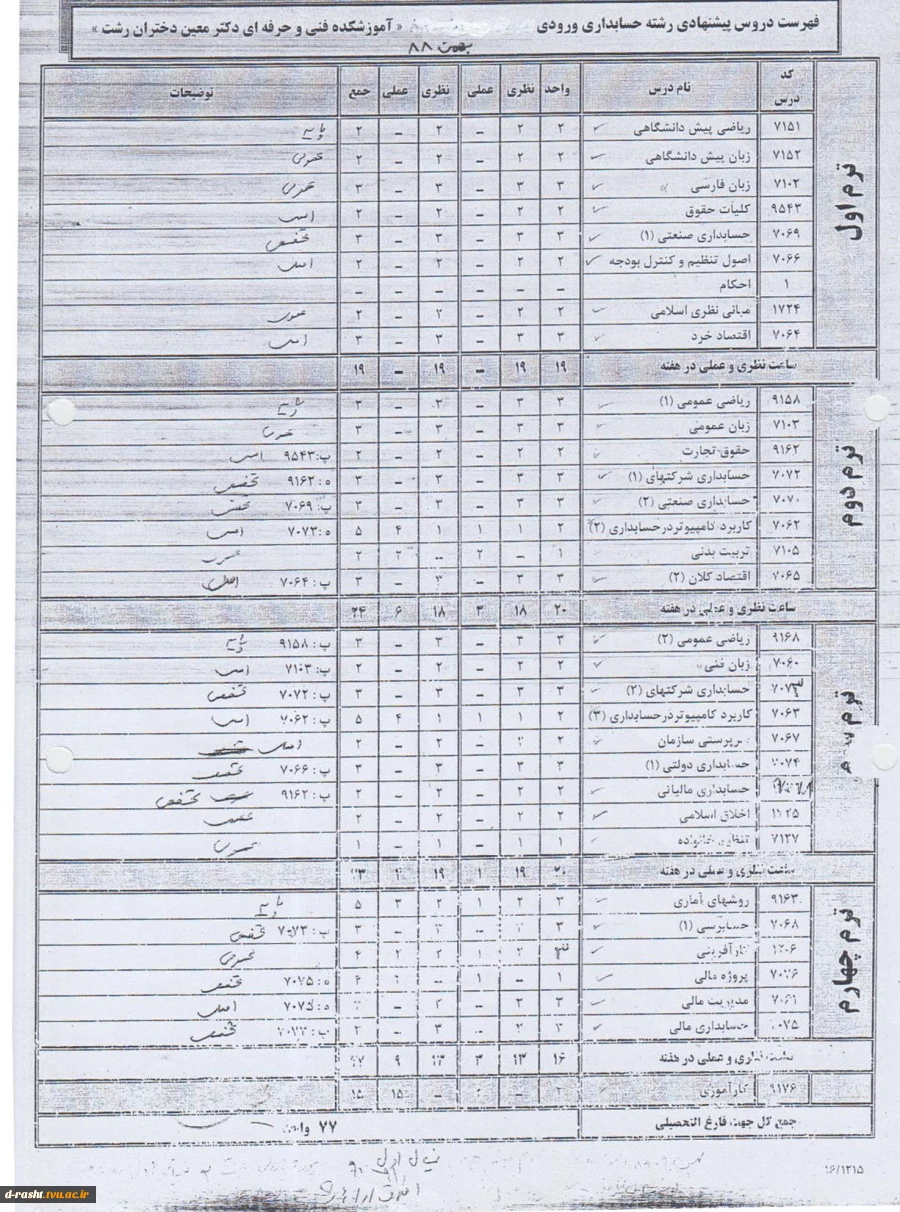 فهرست دروس پیشنهادی رشته حسابداری ورودی « آموزشکده فنی و حرفه ای دکتر معین دختران رشت »
بهمن ۸۸
کد درس نام درس واحد نظری عملی نظری عملی جمع توضیحات
ترم اول
۷۱۵۱ ریاضی پیش دانشگاهی ۲ ۲ – ۲ – ۲ پایه
۷۱۵۲ زبان پیش دانشگاهی ۲ ۲ – ۲ – ۲ عمومی
۷۱۰۲ زبان فارسی ۳ ۳ – ۳ – ۳ عمومی
۹۵۴۳ کلیات حقوق ۲ ۲ – ۲ – ۲ اصلی
۷۰۶۹ حسابداری صنعتی (۱) ۳ ۳ – ۳ – ۳ تخصصی
۷۰۶۶ اصول تنظیم و کنترل بودجه ۲ ۲ – ۲ – ۲ اصلی
۱ احکام – – – – – –
۱۷۲۴ مبانی نظری اسلامی ۲ ۲ – ۲ – ۲ عمومی
۷۰۶۴ اقتصاد خرد ۳ ۳ – ۳ – ۳ اصلی
ساعت نظری و عملی در هفته ۱۹ ۱۹ – ۱۹ – ۱۹
ترم دوم
۹۱۵۸ ریاضی عمومی (۱) ۳ ۳ – ۳ – ۳ پایه
۷۱۰۳ زبان عمومی ۳ ۳ – ۳ – ۳ عمومی
۹۱۶۲ حقوق تجارت ۲ ۲ – ۲ – ۲ پ:۹۵۴۳ اصلی
۷۰۷۲ حسابداری شرکتهای (۱) ۳ ۳ – ۳ – ۳ ه:۹۱۶۲ تخصصی
۷۰۷۰ حسابداری صنعتی (۲) ۳ ۳ – ۳ – ۳ پ:۷۰۶۹ تخصصی
۷۰۶۲ کاربرد کامپیوتردرحسابداری (۲) ۲ ۱ ۱ ۱ ۴ ۵ ه:۷۰۷۳ اصلی
۷۱۰۵ تربیت بدنی ۱ – ۲ – ۲ ۲ عمومی
۷۰۶۵ اقتصاد کلان (۲) ۳ ۳ – ۳ – ۳ پ: ۷۰۶۴ اصلی
ساعت نظری و عملی در هفته ۲۰ ۱۸ ۳ ۱۸ ۶ ۲۴
ترم سوم
۹۱۶۸ ریاضی عمومی (۲) ۳ ۳ – ۳ – ۳ پ: ۹۱۵۸ پایه
۷۰۶۰ زبان فنی ۲ ۲ – ۲ – ۲ پ:۷۱۰۳ اصلی
۷۰۷۳ حسابداری شرکتهای (۲) ۳ ۳ – ۳ – ۳ پ: ۷۰۷۲ تخصصی
۷۰۶۳ کاربرد کامپیوتردرحسابداری (۳) ۲ ۱ ۱ ۱ ۴ ۵ پ:۷۰۶۲ اصلی
۷۰۶۷ سرپرستی سازمان ۲ ۲ – ۲ – ۲ اصلی
۷۰۷۴ حسابداری دولتی (۱) ۳ ۳ – ۳ – ۳ پ: ۷۰۶۶ تخصصی
حسابداری مالیاتی ۲ ۲ – ۲ – ۲ پ: ۹۱۶۲ تخصصی
اخلاق اسلامی ۲ ۲ – ۲ – ۲
۷۱۲۷ تنظیم خانواده ۱ ۱ – ۱ – ۱ عمومی
ساعت نظری و عملی در هفته ۲۰ ۱۹ ۱ ۱۹
ترم چهارم
۹۱۶۳ روشهای آماری ۳ ۲ ۱ ۲ ۳ ۵ پایه
۷۰۶۸ حسابرسی (۱) ۳ ۳ پ:۷۰۷۳ تخصصی
کارآفرینی ۱ ۲ ۲ ۴ عمومی
پروژه مالی ۱ – ۱ ه:۷۰۷۵ تخصصی
مدیریت مالی ۳ ۳ – ه:۷۰۷۵ اصلی
۷۰۷۵ حسابداری مالی ۳ ۳ – تخصصی
ساعت نظری و عملی در هفته ۱۶ ۱۳ ۳ ۱۳ ۹
۹۱۷۶ کارآموزی ۲ – – ۱۵ ۱۵
جمع کل جهت فارغ التحصیلی ۷۷ واحد
d-rasht.tvu.ac.ir